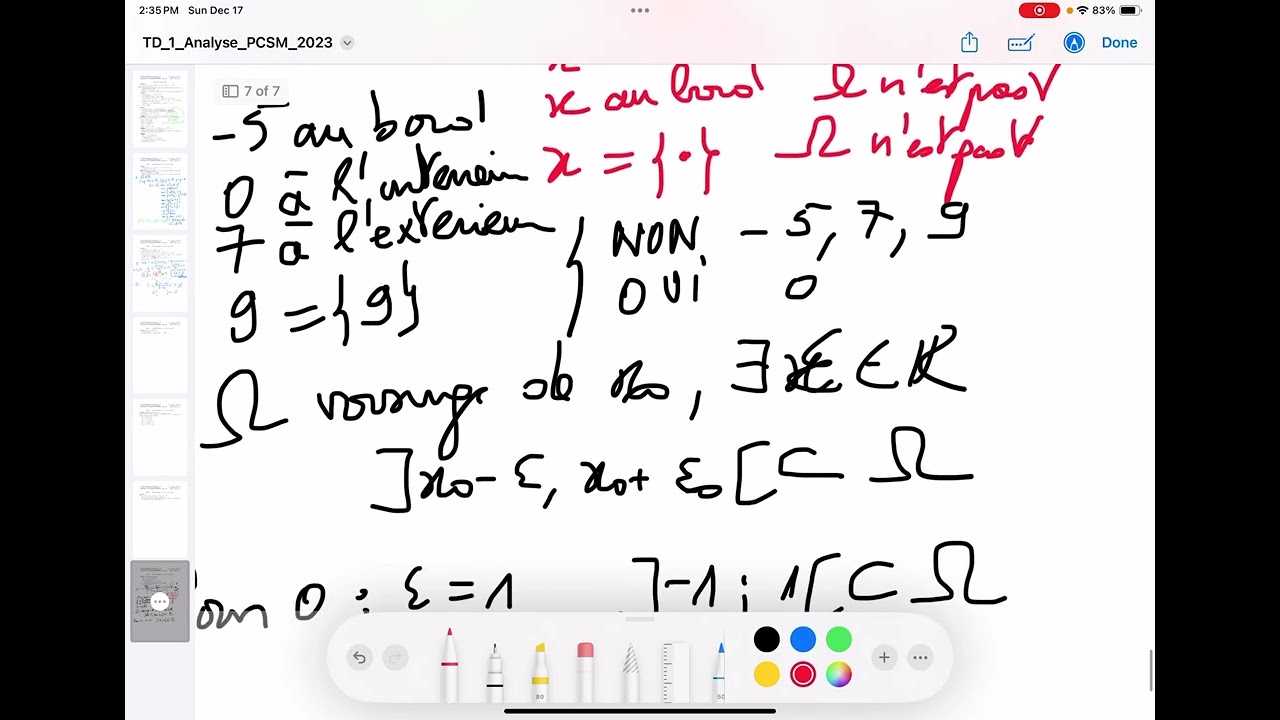 2:35 PM Sun Dec 17
83%
TD_1_Analyse_PCSM_2023
Done
7 of 7
x au bord Ω n'est pas V
x = {.} Ω n'est pas V
-5 au bord
0 à l'interieur
7 à l'exterieur
9 = {9}
NON -5, 7, 9
OUI 0
Ω voisinage de x0, ∃ ε ∈ R
]x0 - ε, x0 + ε0[ ⊂ Ω
0 : ε = 1 ]-1 ; 1[ ⊂ Ω
80
50